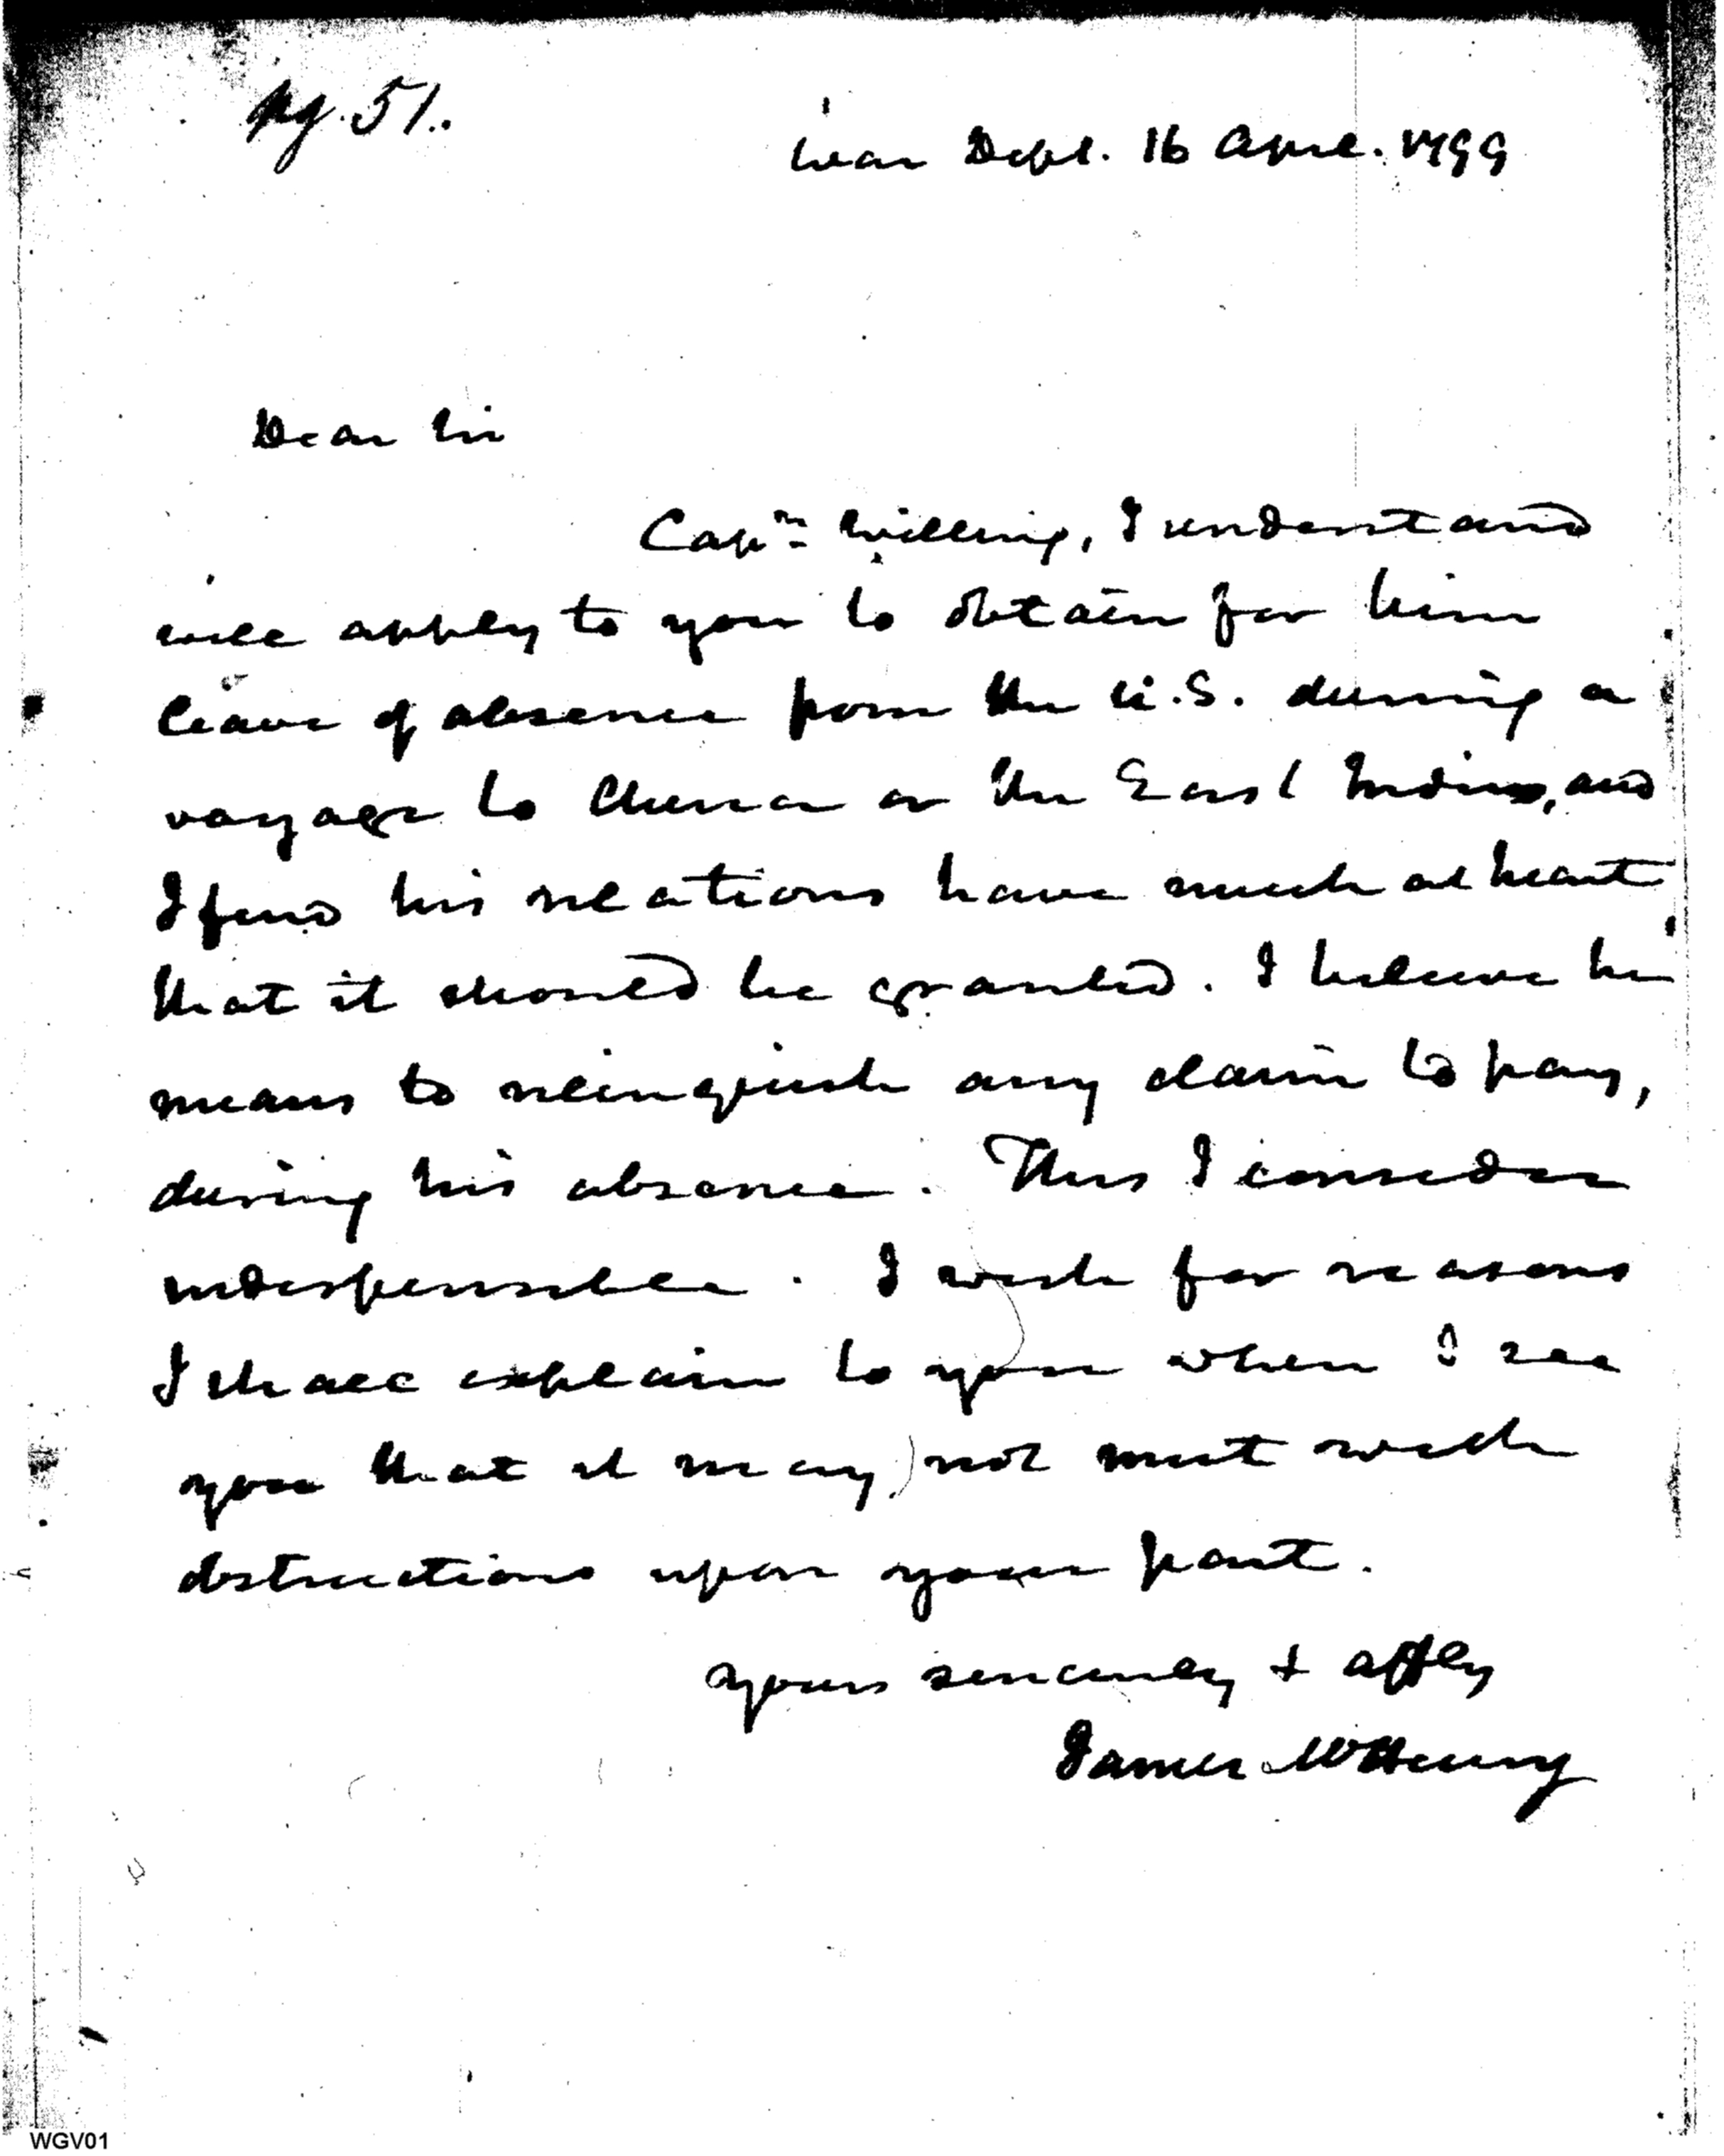 pg. 51.
War Dept. 16 April. 1799
Dear Sir
Capn. Willing, I understand
will apply to you to obtain for him
leave of absence from the U.S. during a
voyage to China or the East Indies, and
I find his relations have much at heart
that it should be granted. I believe he
means to relinquish any claim to pay,
during his absence. This I consider
indispensible. I wish for reasons
I shall explain to you when I see
you that it may not meet with
obstructions upon your part.
yours sincerely & affly
James McHenry
WGV01